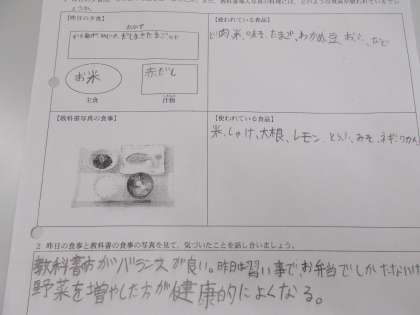 【昨日の夕食】
【使われている食品】
おかず
だしまきたまご
お米
赤だし
主食
汁物
肉、米、のみそ、たまご、わかめ、豆、など
【教科書写真の食事】
【使われている食品】
米、しゃけ、大根、レモン、とうふ、みそ、ネギ、
2 昨日の食事と教科書の食事の写真を見て、気づいたことを話し合いましょう。
教科書の方がバランスが良い。昨日は習い事で、お弁当でしかたないけど
野菜を増やした方が健康的によくなる。